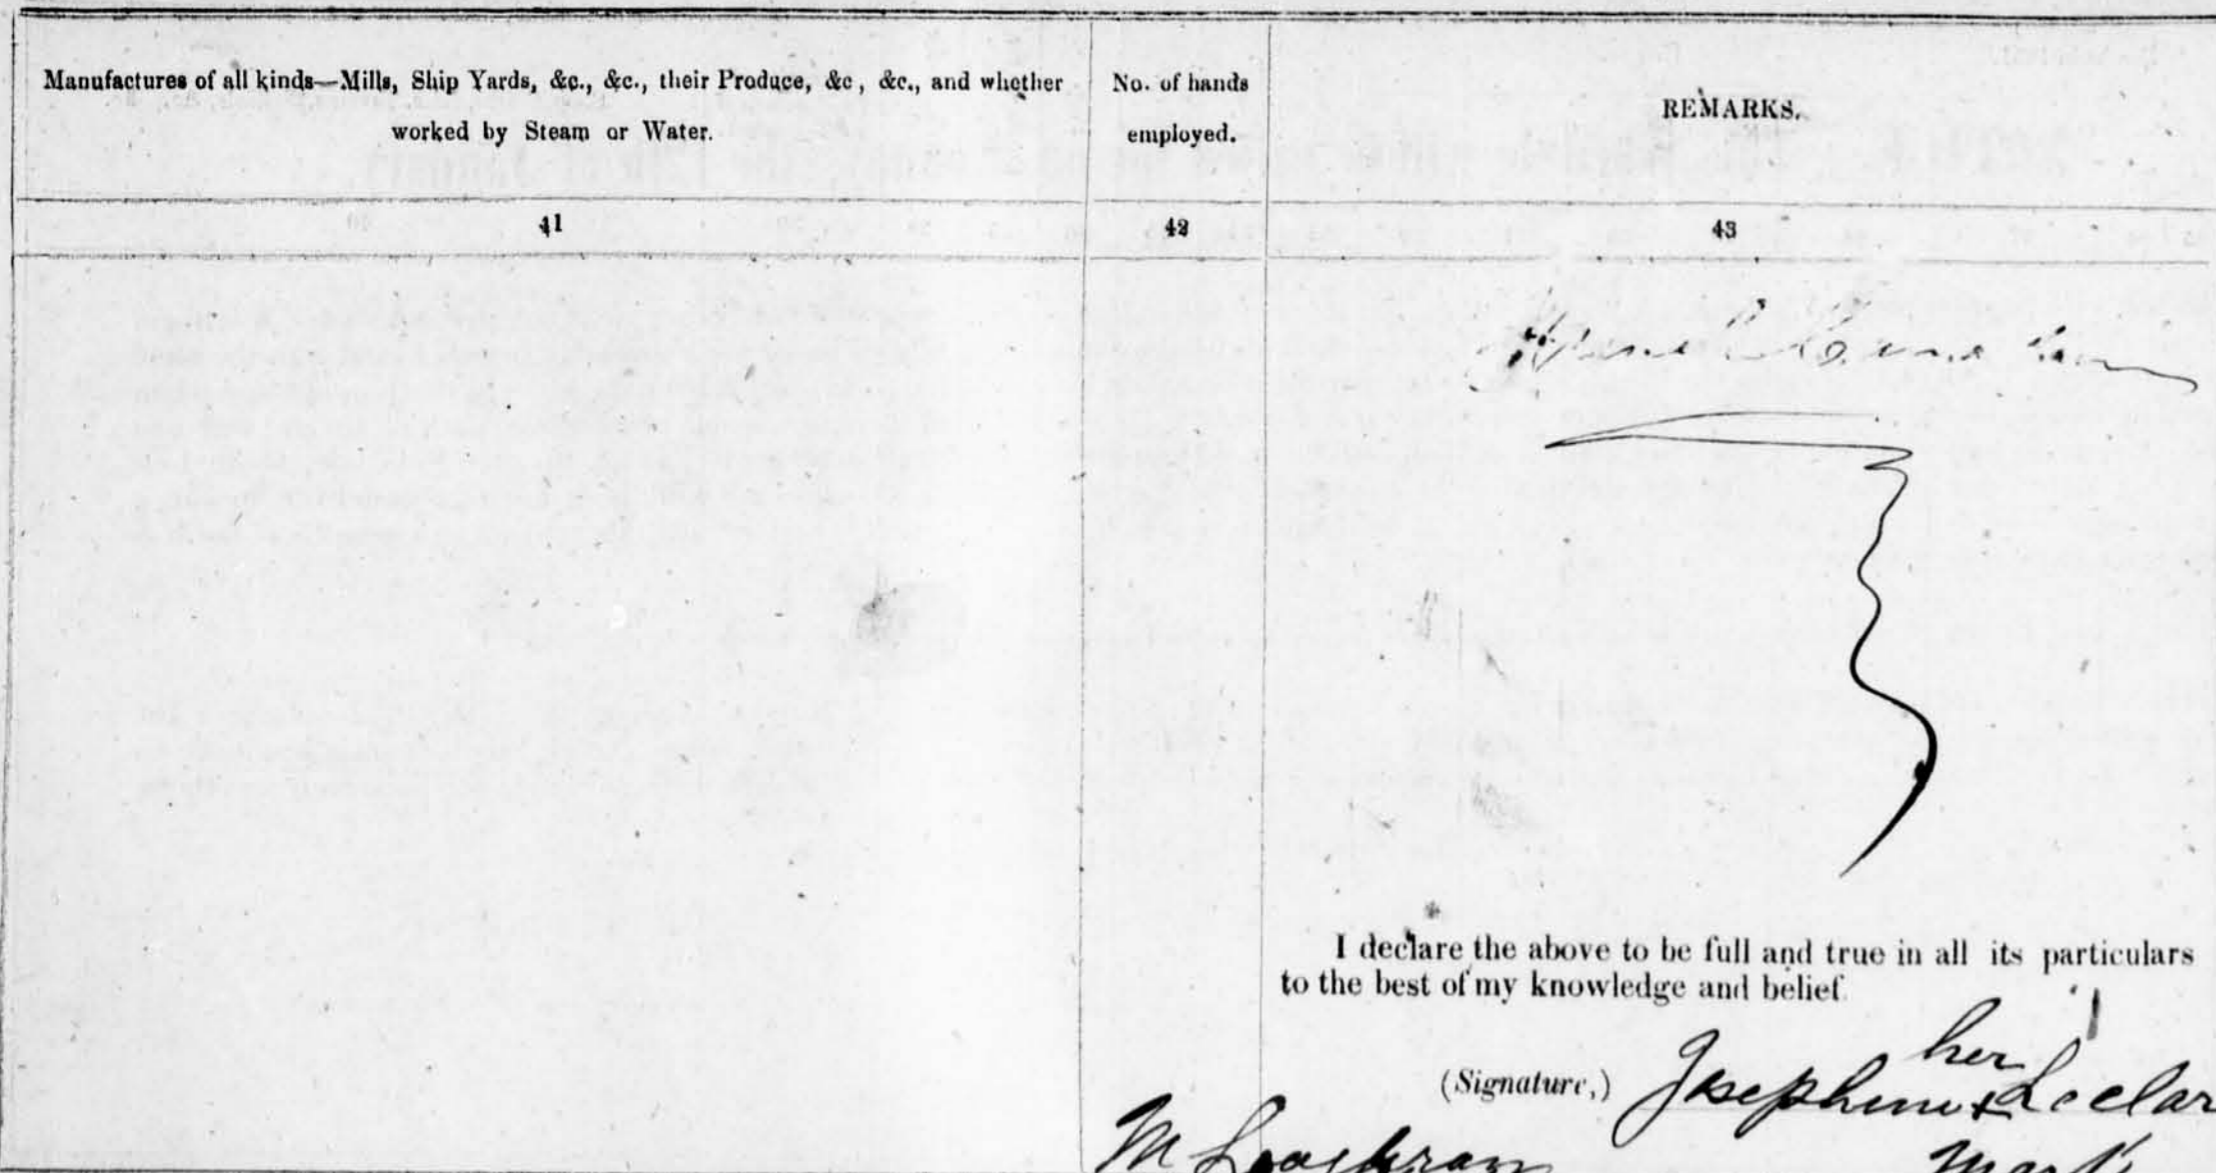 Manufactures of all kinds—Mills, Ship Yards, &c., &c., their Produce, &c, &c., and whether
worked by Steam or Water.
No. of hands
employed.
REMARKS.
41
42
43
I declare the above to be full and true in all its particulars
to the best of my knowledge and belief
her
(Signature,) Josephine x Leclar
M Loughran
mark